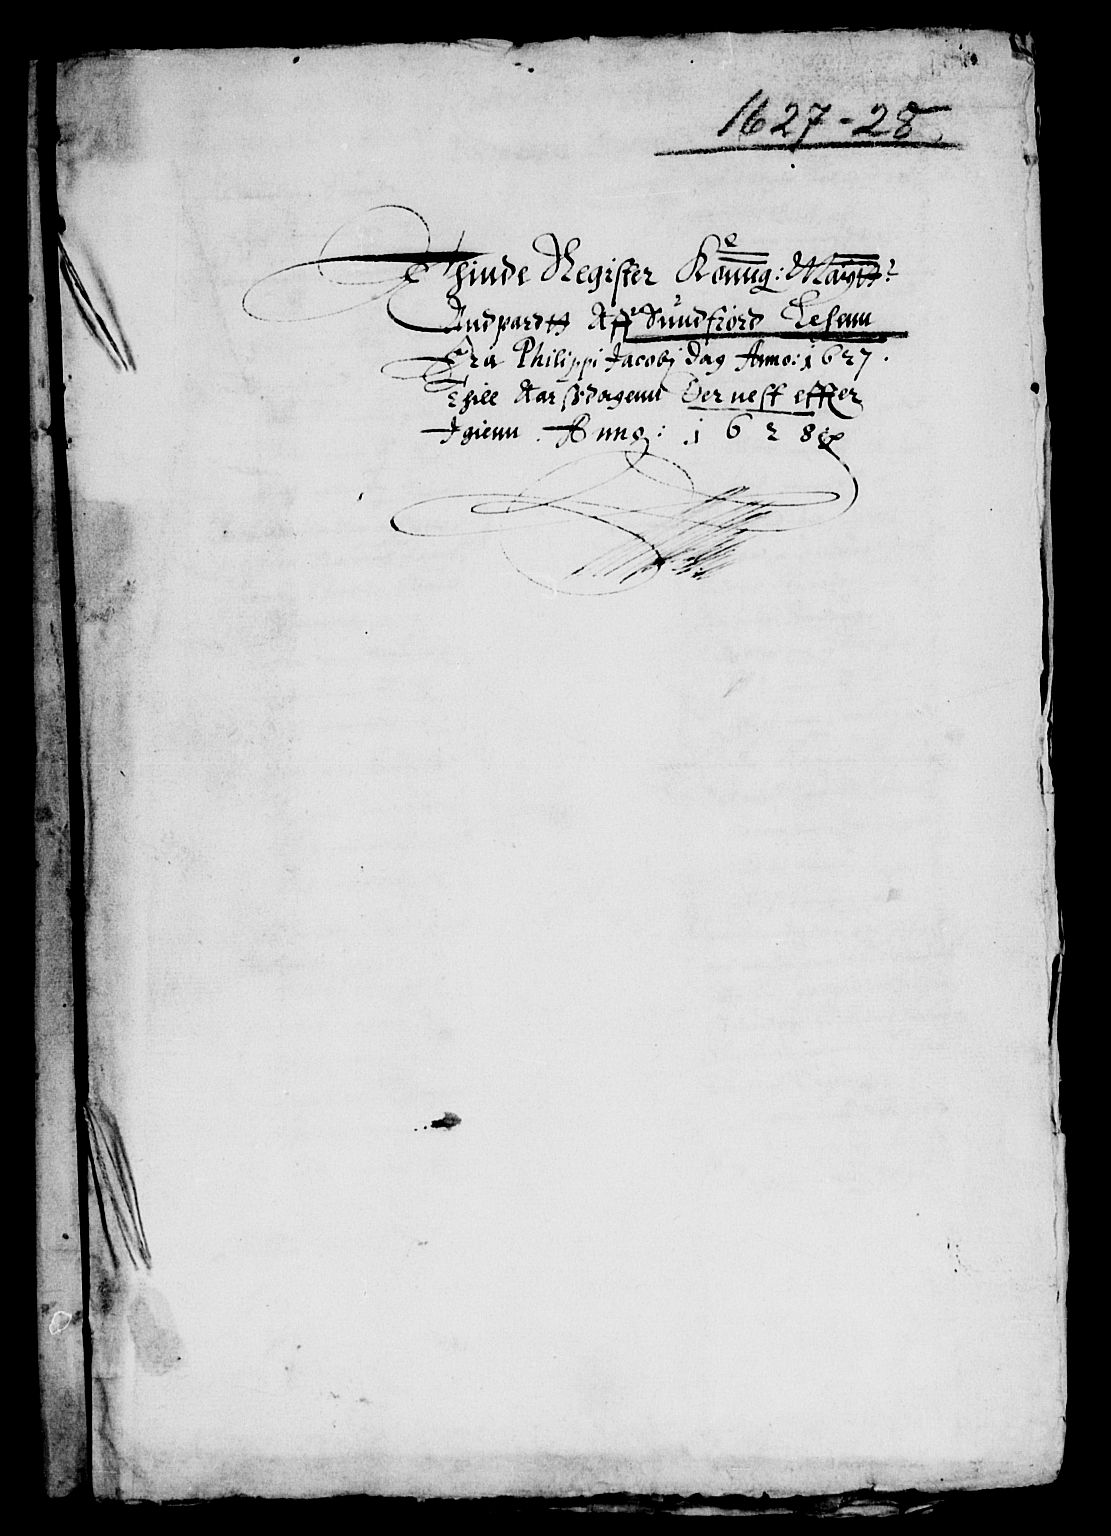 1627-28
Thinde Register Könnig: Maÿtts
Andpardtt Aff Sundfiord Lehenn
Fra Philippi Jacobj dag Anno: 1627.
Thill Aarssdagenn Der nest effter
Igienn. Anno: 1628